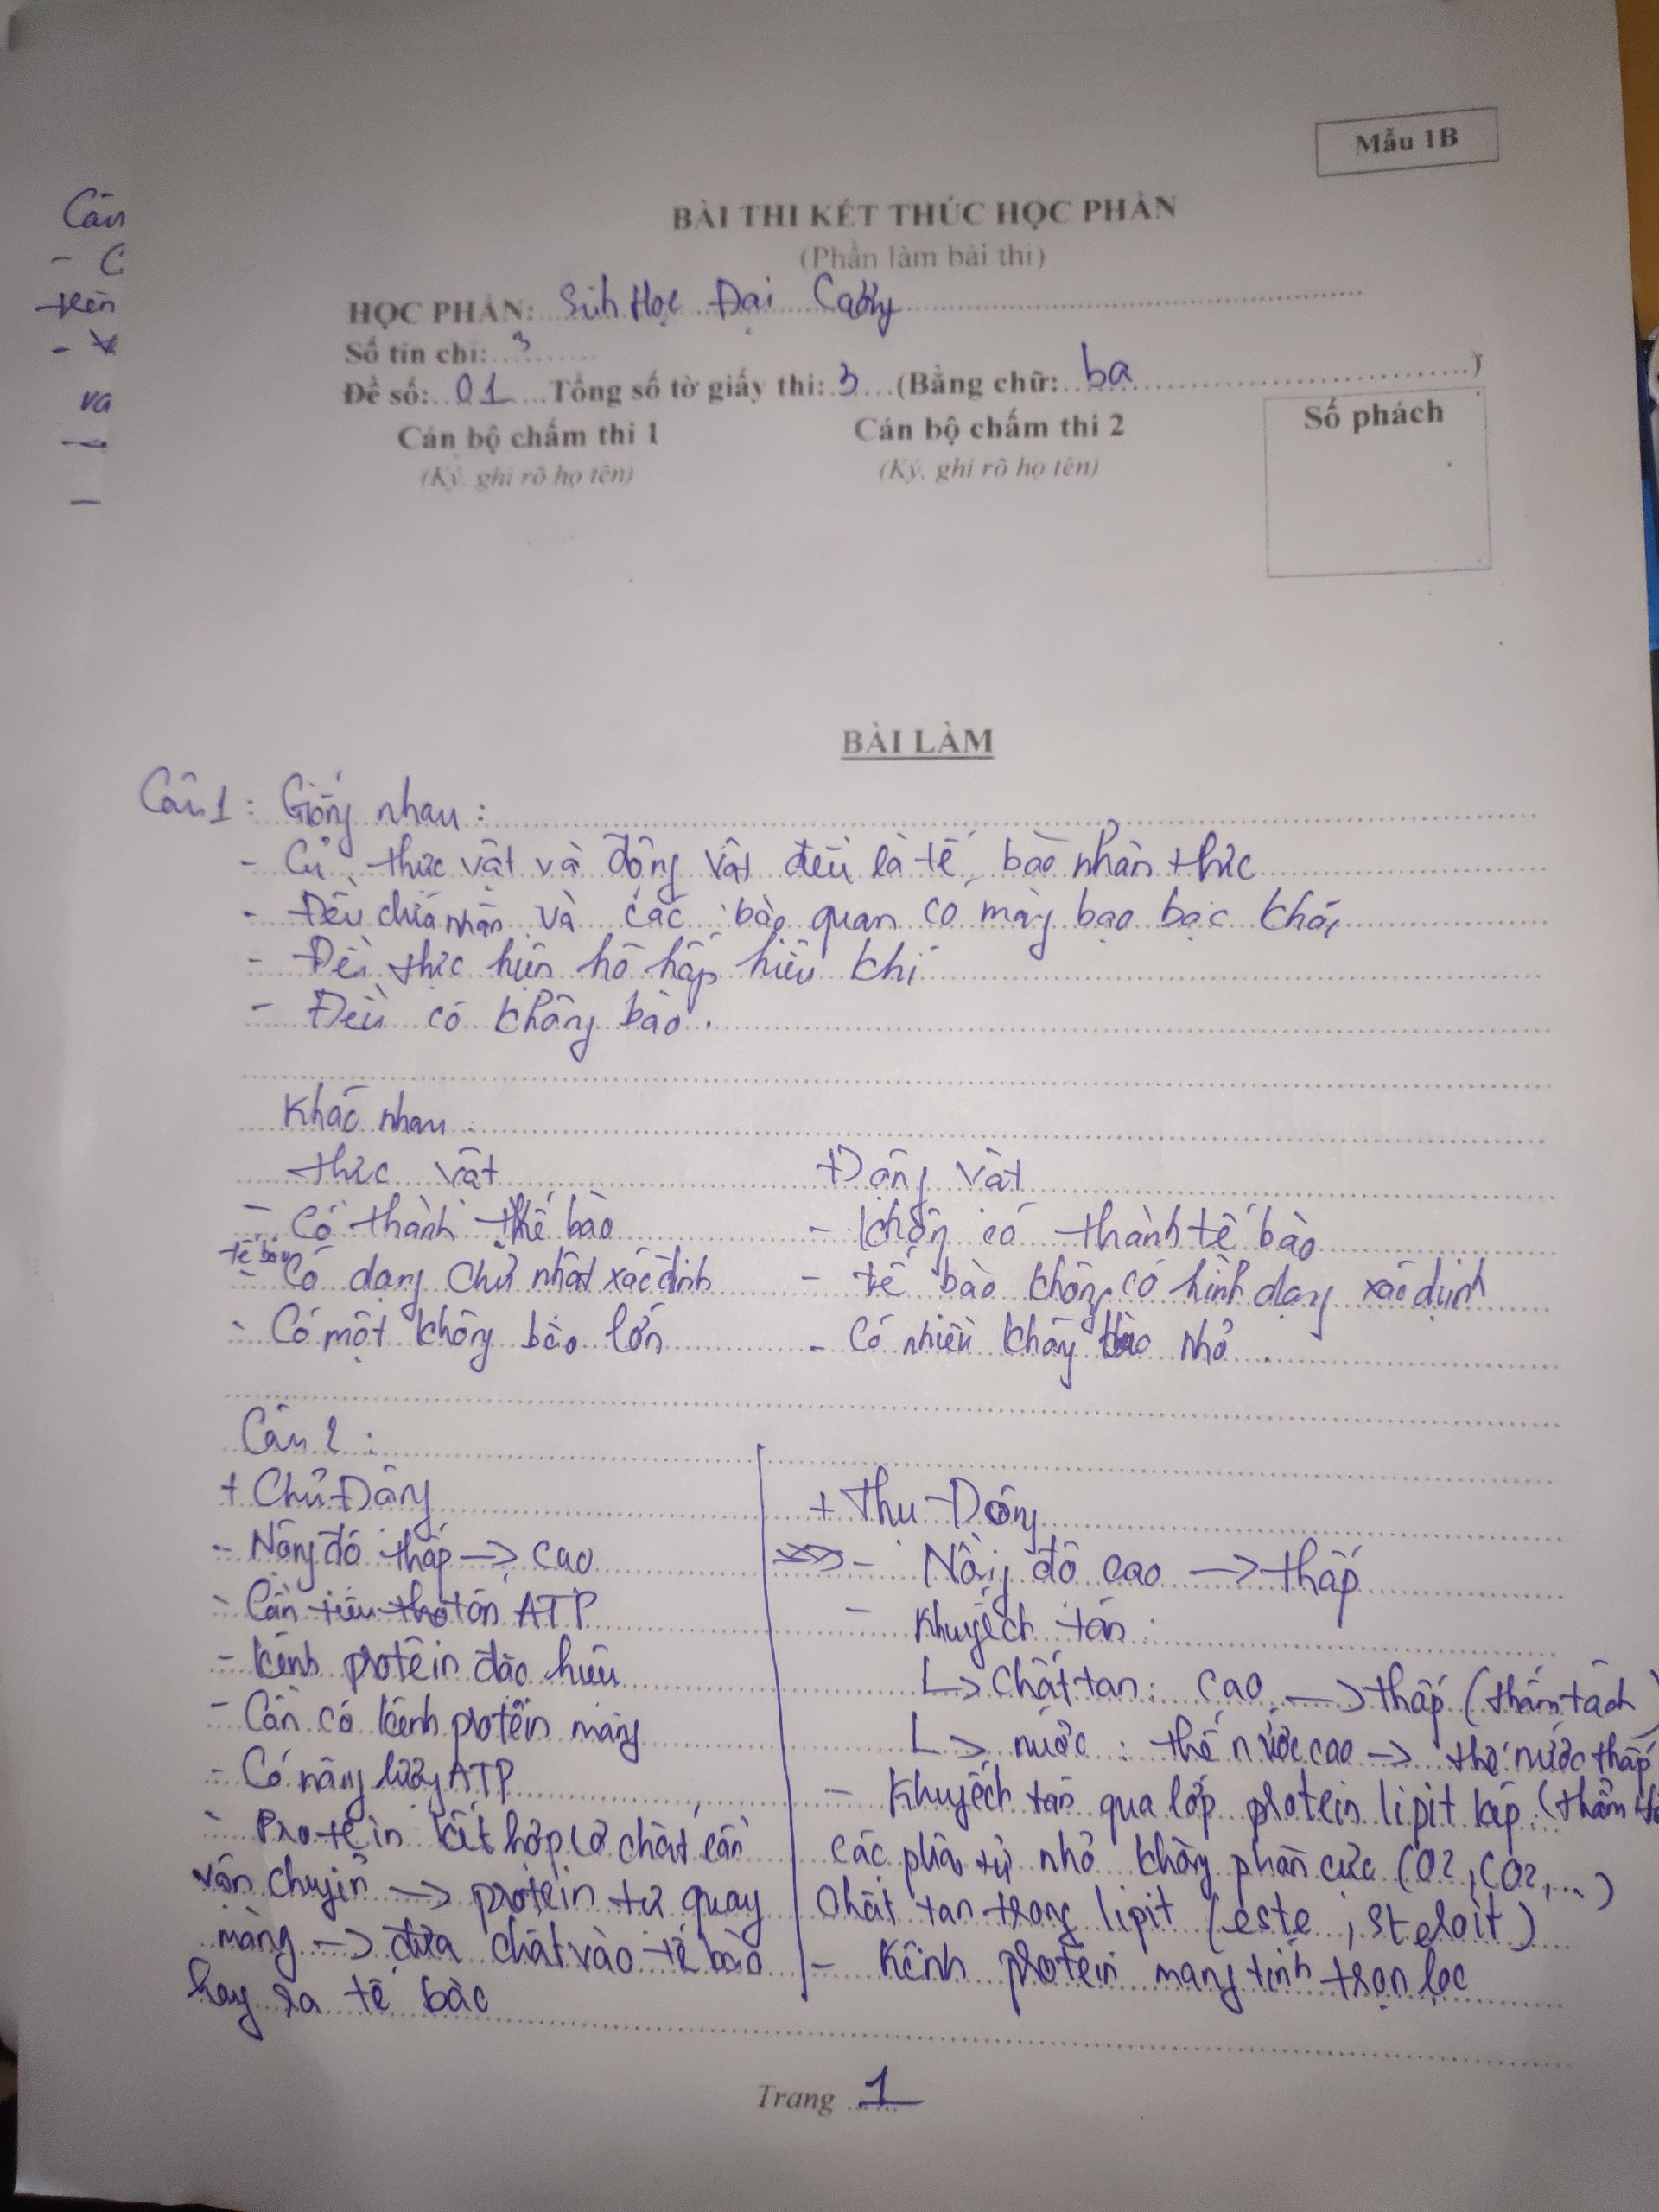 Mẫu 1B
BÀI THI KẾT THÚC HỌC PHẦN
(Phần làm bài thi)
HỌC PHẦN: Sinh Học Đại Cương
Số tín chỉ: 3
Đề số: 01 Tổng số tờ giấy thi: 3 (Bằng chữ: ba )
Cán bộ chấm thi 1 Cán bộ chấm thi 2 Số phách
(Ký, ghi rõ họ tên) (Ký, ghi rõ họ tên)
BÀI LÀM
Câu 1: Giống nhau:
- thực vật và động vật đều là tế bào nhân thực
- Đều chứa nhân và các bào quan có màng bao bọc
- Đều thực hiện hô hấp hiếu khí
- Đều có không bào.
Khác nhau:
thực vật + Động vật
- Có thành tế bào - không có thành tế bào
tế bào
- Có dạng chữ nhật xác định - tế bào không có hình dạng xác định
- Có một không bào lớn - Có nhiều không bào nhỏ.
Câu 2:
+ Chủ Động
- Nồng độ thấp -> cao
- Cần tiêu thụ tốn ATP
- kênh protein đặc hiệu
- Cần có kênh protein màng
- Có năng lượng ATP
- Protein kết hợp cơ chất cần
vận chuyển -> protein tự quay
màng -> đưa chất vào tế bào
hay ra tế bào
+ Thụ Động
- Nồng độ cao -> thấp
- Khuyếch tán:
-> Chất tan: cao -> thấp (thẩm tách)
-> nước: thế nước cao -> thế nước thấp
- Khuyếch tán qua lớp protein lipit kép: (thẩm
các phân tử nhỏ không phân cực (O2, CO2,...)
Chất tan trong lipit (este, steroit)
- Kênh protein mang tính trọn lọc
Trang 1